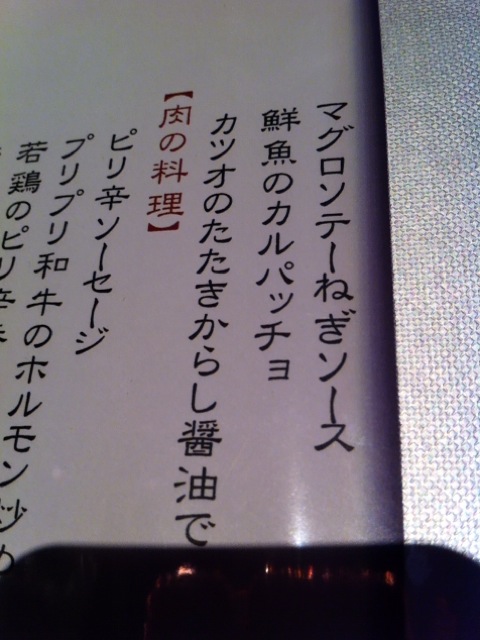 マグロンテーねぎソース
鮮魚のカルパッチョ
カツオのたたきからし醤油で
【肉の料理】
ピリ辛ソーセージ
プリプリ和牛のホルモン炒め
若鶏のピリ辛